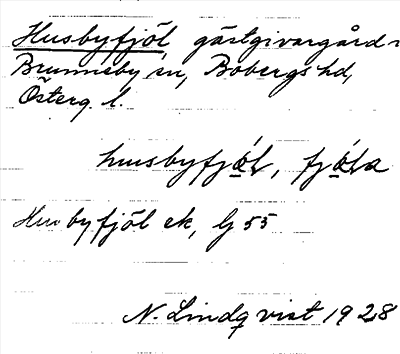 Husbyfjöl, gästgivargård i
Brunneby sn, Bobergs hd,
Österg. l.
husbyfjól, fjóla
Husbyfjöl ek, Lj 55
N. Lindqvist 1928